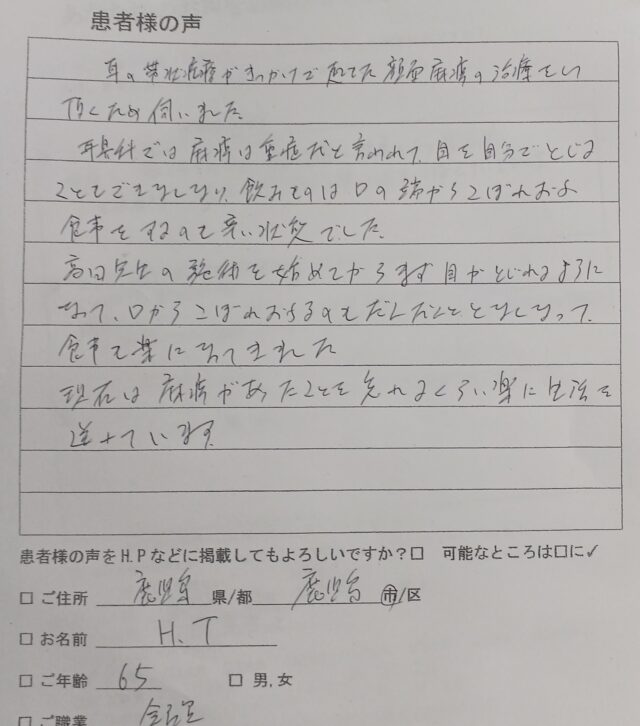 患者様の声
耳の帯状疱疹がきっかけで起きた顔面麻痺の治療をしに
頂くため伺いました。
耳鼻科では麻痺は重症だと言われて、目を自分でとじる
こともできなくなり、飲みものは口の端からこぼれおち
食事をするのも辛い状態でした。
高田先生の施術を始めてからまず目がとじれるように
なって、口からこぼれおちるのもだんだんとなくなって、
食事も楽になってきました
現在は麻痺があったことを忘れるくらい楽に生活を
送れています。
患者様の声をH.Pなどに掲載してもよろしいですか？□ 可能なところは□に✓
□ ご住所 鹿児島 県/都 鹿児島 市/区
□ お名前 H.T
□ ご年齢 65 □ 男,女
□ ご職業